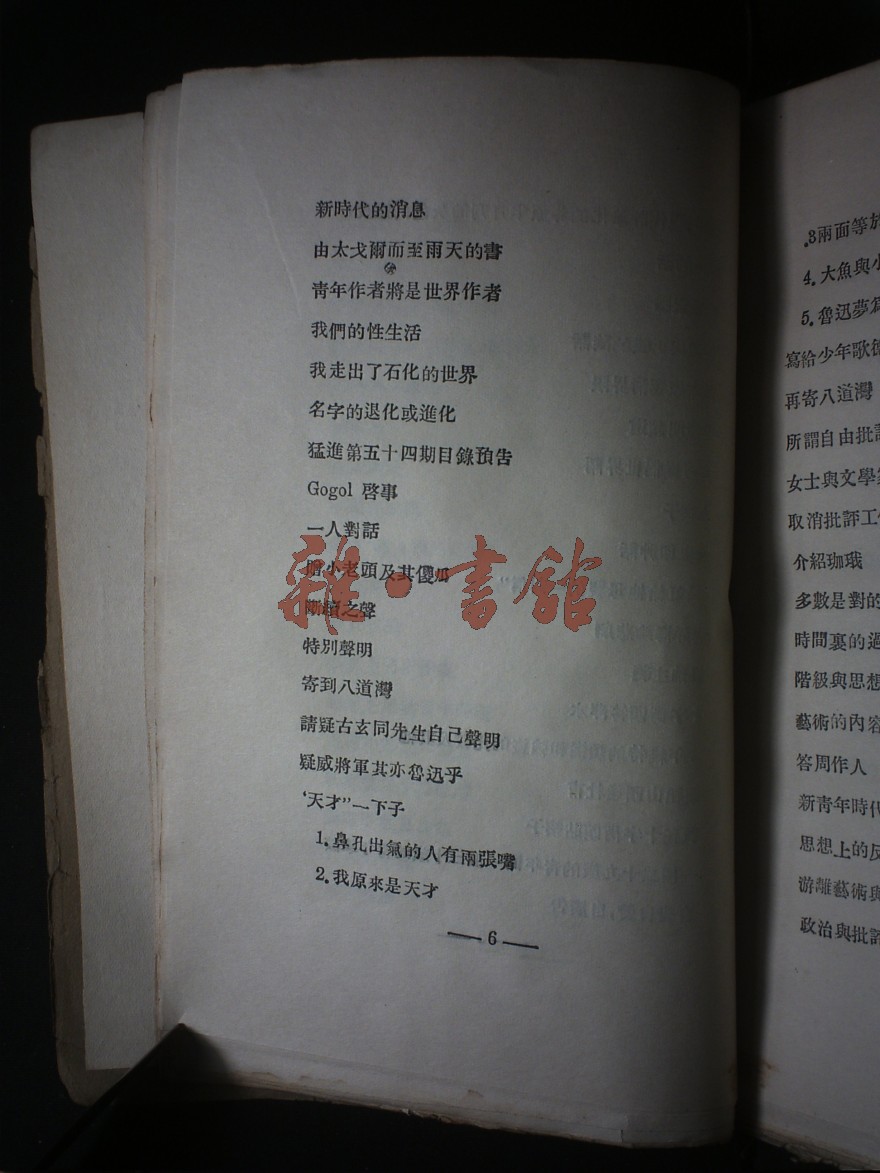 新時代的消息
由太戈爾而至雨天的書
靑年作者將是世界作者
我們的性生活
我走出了石化的世界
名字的退化或進化
猛進第五十四期目錄預告
Gogol 啓事
一人對話
贈小老頭及其傻瓜
斷續之聲
特別聲明
寄到八道灣
請疑古玄同先生自己聲明
疑威將軍其亦魯迅乎
‘天才”一下子
1.鼻孔出氣的人有兩張嘴
2.我原來是天才
—6—
雜·書館
.3兩面等於
4.大魚與小
5.魯迅夢爲
寫給少年歌德
再寄八道灣
所謂自由批評
女士與文學家
取消批評工作
介紹珈珴
多數是對的
時間裏的過
階級與思想
藝術的內容
答周作人
新靑年時代
思想上的反
游離藝術與
政治與批評